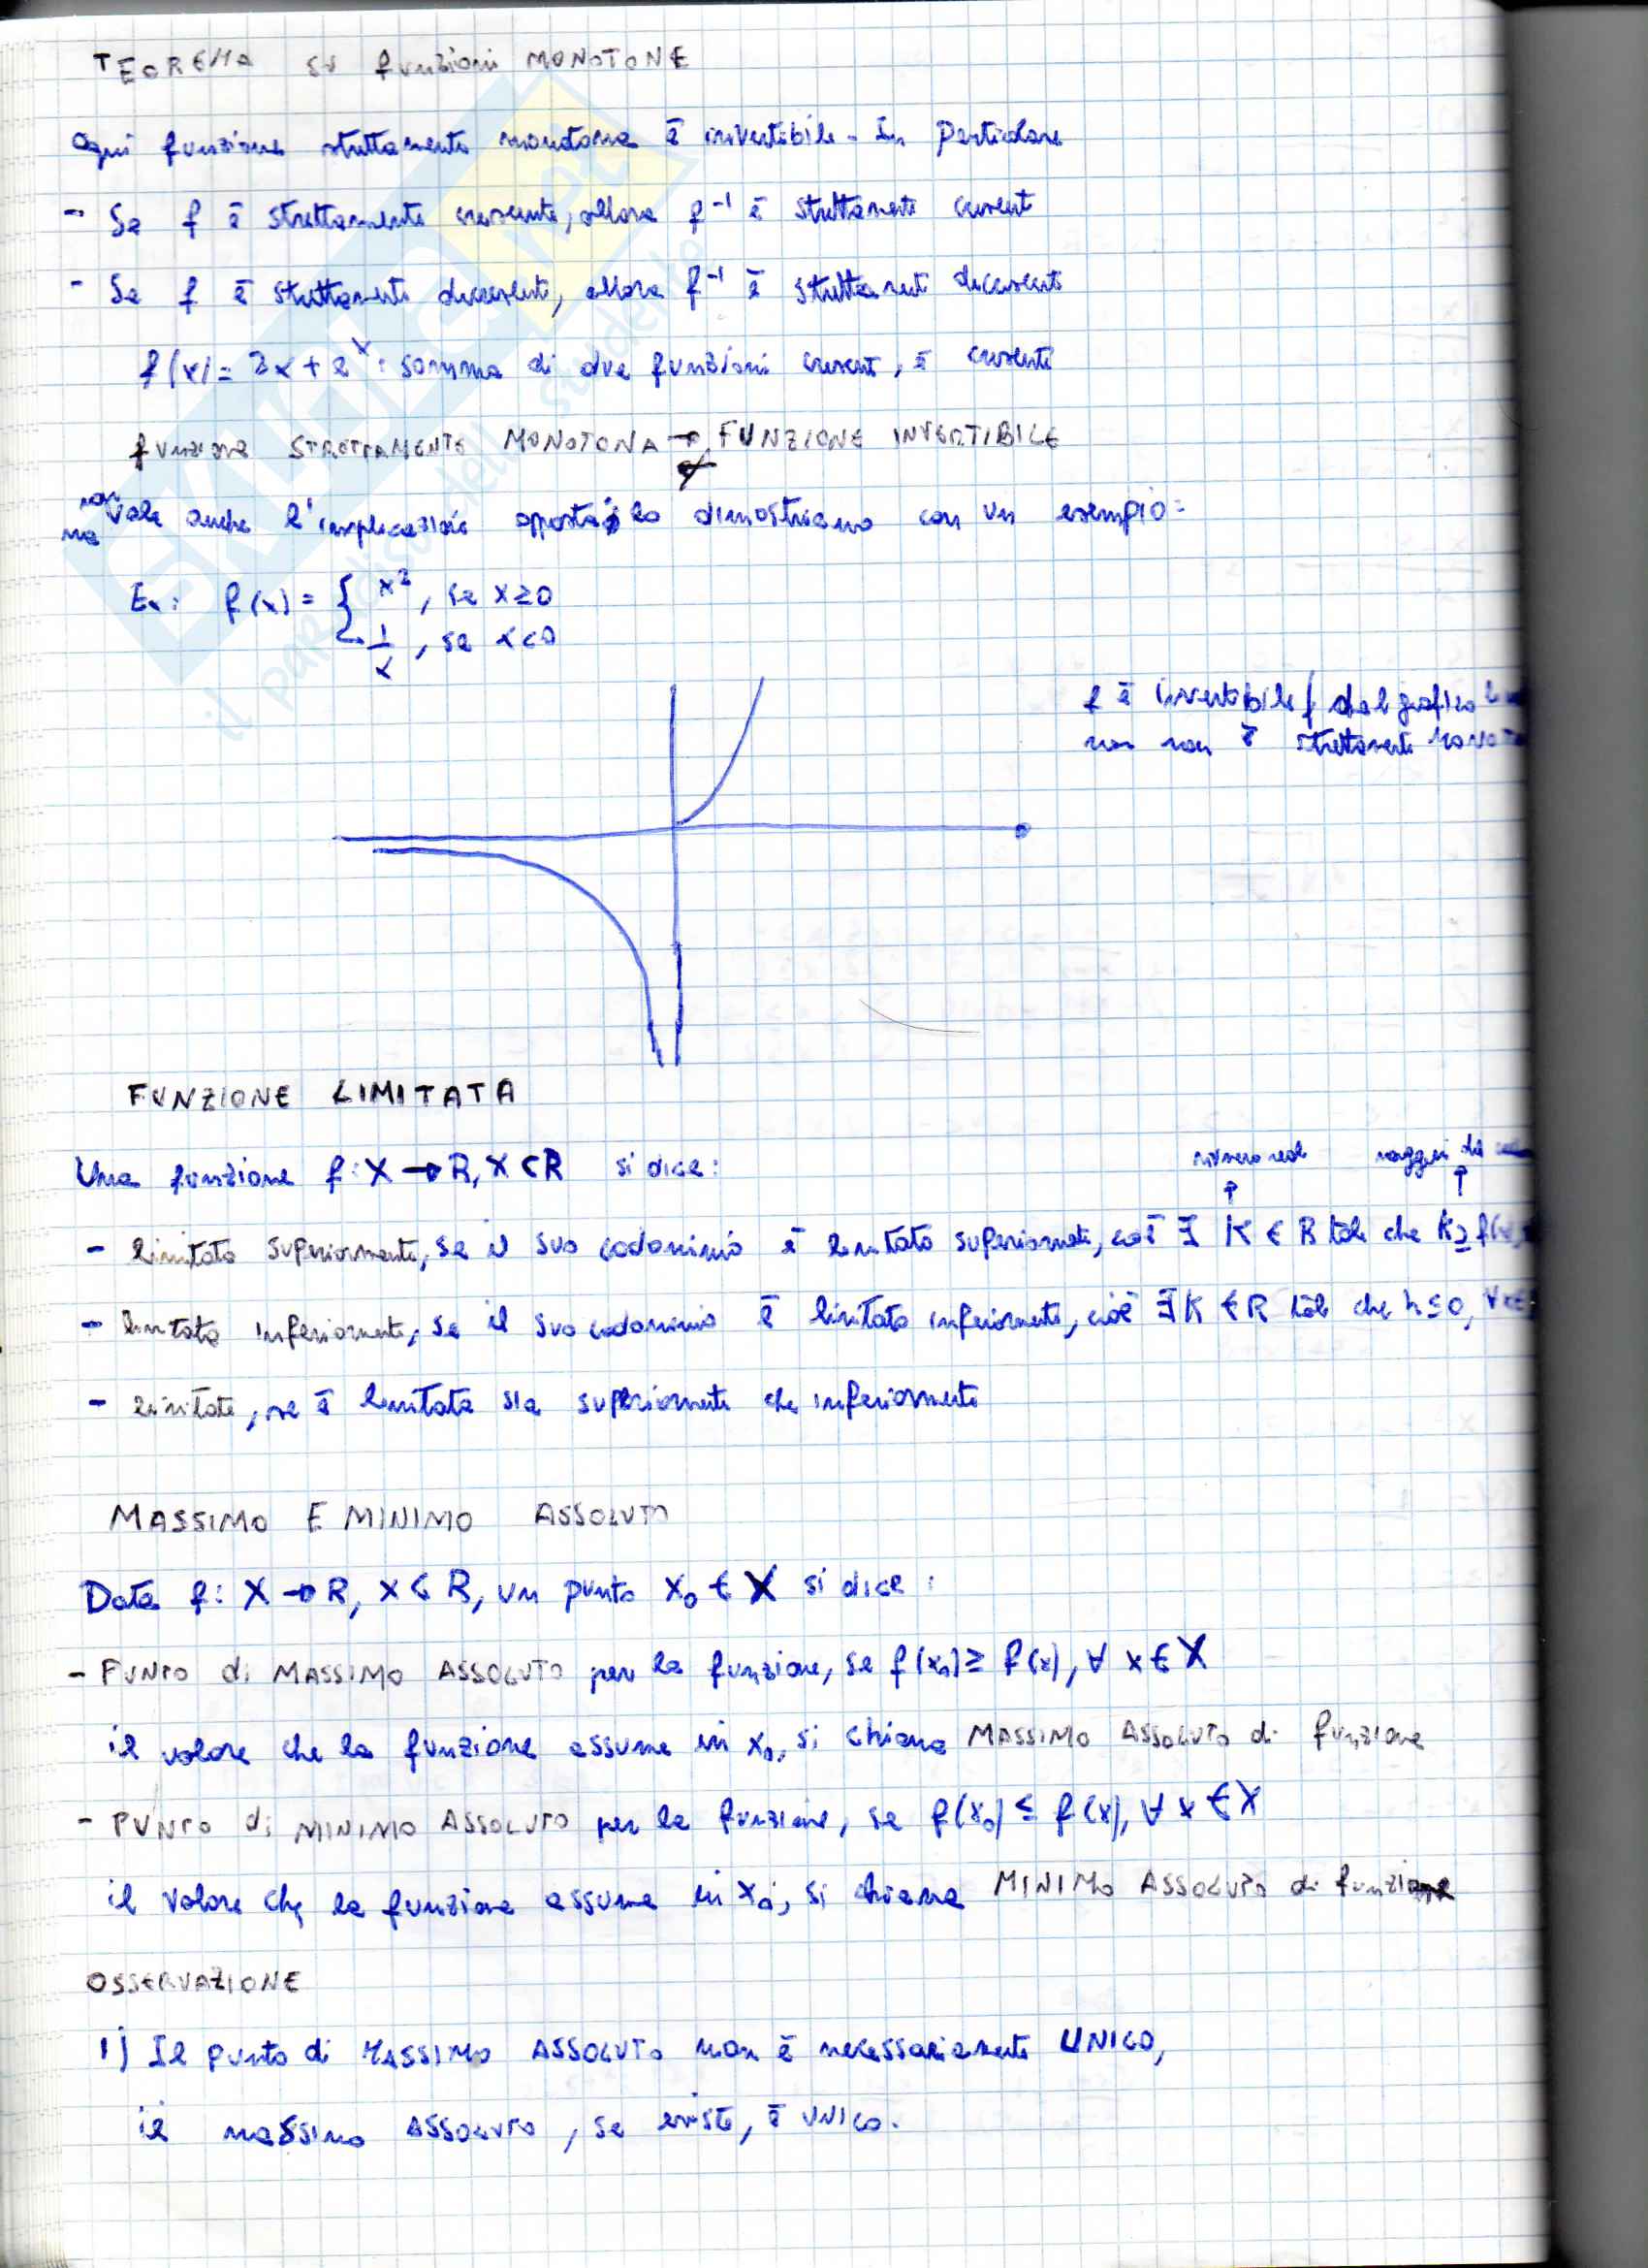 TEOREMA su funzioni MONOTONE
Ogni funzione strettamente monotona è invertibile - In particolare
- Se f è strettamente crescente, allora f⁻¹ è strettamente crescente
- Se f è strettamente decrescente, allora f⁻¹ è strettamente decrescente
f(x) = 3x + 2ˣ : somma di due funzioni crescenti, è crescente
funzione STRETTAMENTE MONOTONA → FUNZIONE INVERTIBILE
ma non vale anche l'implicazione opposta; lo dimostriamo con un esempio:
Ex: f(x) = { x², se x≥0
1/x, se x<0
f è invertibile dal grafico
ma non è strettamente monotona
FUNZIONE LIMITATA
numero reale
Una funzione f: X → R, X ⊂ R si dice:
- limitata superiormente, se il suo codominio è limitato superiormente, cioè ∃ K ∈ R tale che K ≥ f(x)
- limitata inferiormente, se il suo codominio è limitato inferiormente, cioè ∃ K ∈ R tale che h ≤ 0, ∀ x ∈
- limitata, se è limitata sia superiormente che inferiormente
MASSIMO E MINIMO ASSOLUTO
Data f: X → R, X ⊂ R, un punto x₀ ∈ X si dice:
- PUNTO di MASSIMO ASSOLUTO per la funzione, se f(x₀) ≥ f(x), ∀ x ∈ X
il valore che la funzione assume in x₀, si chiama MASSIMO ASSOLUTO di funzione
- PUNTO di MINIMO ASSOLUTO per la funzione, se f(x₀) ≤ f(x), ∀ x ∈ X
il valore che la funzione assume in x₀, si chiama MINIMO ASSOLUTO di funzione
OSSERVAZIONE
1) Il punto di MASSIMO ASSOLUTO non è necessariamente UNICO,
il massimo ASSOLUTO, se esiste, è UNICO.